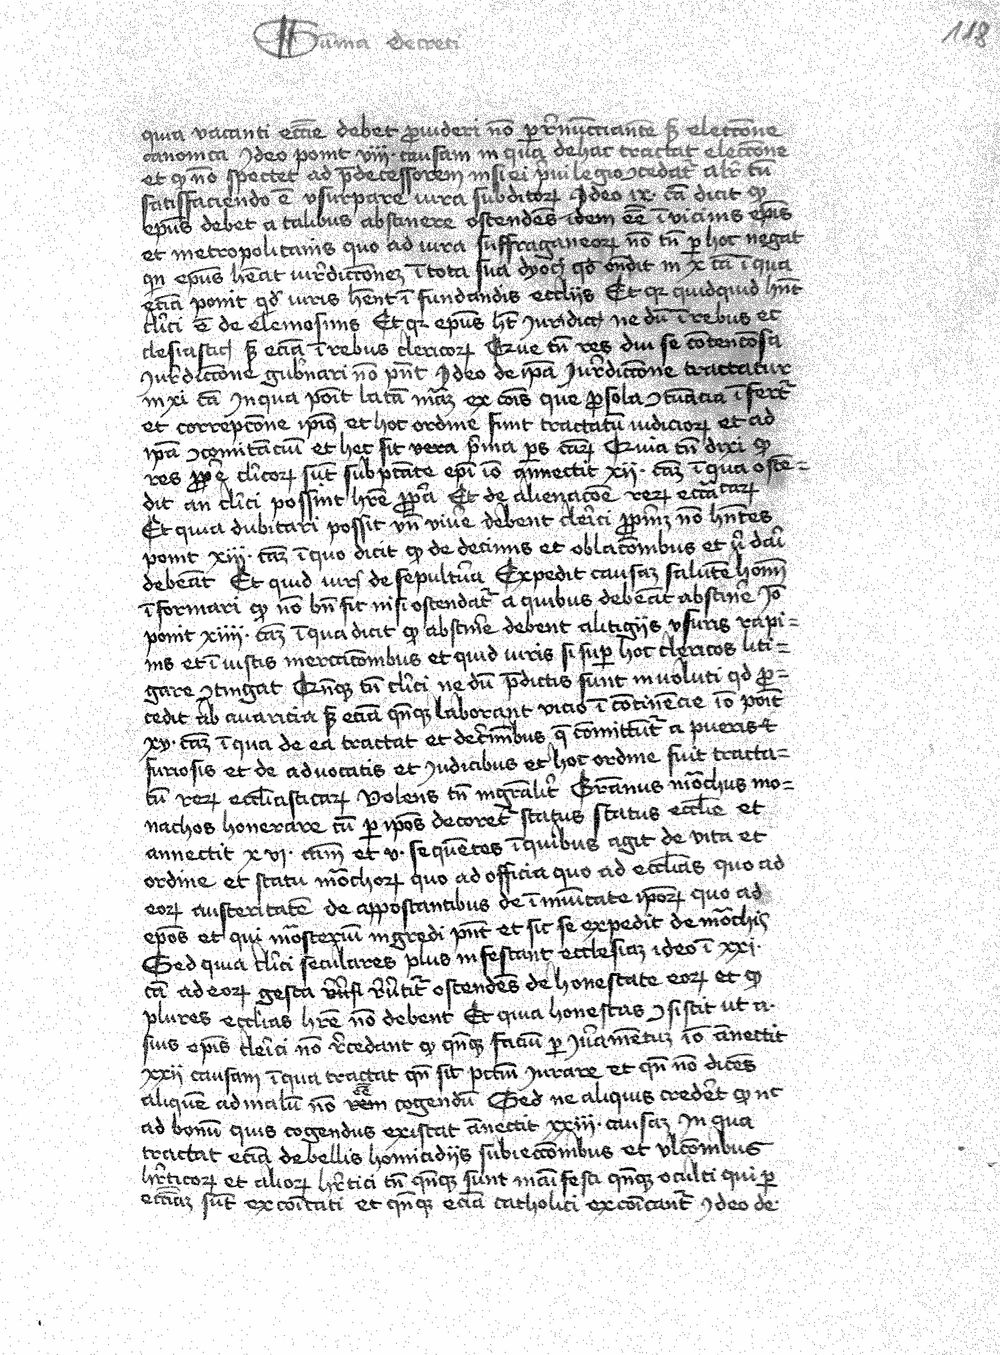 Suma decreti
118
quia vacanti ecc̄ie debet ꝓuideri nō ꝑ r̄nūcciantē sꝫ eleccōne
canonica Ideo ponit viii· causam in qua de hac tractat eleccōne
et ꝙ nō spectet ad p̄decessorem nisi ei p̄uilegio ↄcedat᷑ alr̄ cū
satisfaciendo ē vsurpare iura subditoꝝ Ideo ix· cā dicit ꝙ
ep̄us debet a talibus abstinere ostendēs idem eē̄ ī vicinis ep̄is
et metropolitanis quo ad iura suffraganeoꝝ nō tn̄ ꝑ hoc negat
qn̄ ep̄us hēat iur̄diccionēꝫ ī tota sua dyoc̄ qd̓ ondit in x cā ī qua
eciā ponit qd̓ iuris hn̄t ī fundandis eccl̄iis Et qꝛ quidquid hn̄t
cl̄ici ē de elemosinis Et qꝛ ep̄us hꝫ Iuridicc̄ ne dū ī rebus ec
clesiastic̄ sꝫ eciā ī rebus clericoꝝ Que tn̄ res diu se cōtencōsa
Iur̄diccōne gub̓nari nō pn̄t Ideo de ip̄a Iur̄diccōne tractatur
in xi cā In qua poīt latā mā̄ꝫ ex cōis que ꝓ sola ↄtuācia īfert᷑
et correpcōne ip̄ius et hoc ordine fiunt tractatū iudicioꝝ et ad
ip̄ā ↄcomitāciū et hec sit vera p̄ma ps caꝝ Quia tn̄ dixi ꝙ
res ꝓpē cl̄icoꝝ sūt sub ptāte epī iō annectit xii· cāꝫ ī qua ostē=
dit an cl̄ici possint hr̄e ꝓpā Et de alienacōe reꝝ ecc̄iācaꝝ
Et quia dubitari possit vn̄ viue debent cleīci ꝓpīnꝫ nō hn̄tes
ponit xiii· cāꝫ ī quo dicit ꝙ de decimis et oblacōnibus et ꝟ dāī
debeāt Et quid iurꝭ de sepultura Expedit causaꝫ salutē homī
īformari ꝙ nō bn̄ fit nisi ostendat᷑ a quibus debeāt abstinē Iō
ponit xiiii· cāꝫ ī qua dicit ꝙ abstinē debent a litigijs vsuris rapi=
nis et īiustis mercacōnibus et quid iuris si suꝑ hoc clericos liti=
gare ↄtingat Qn̄qꝫ tn̄ cl̄ici ne dū p̄dictis sunt inuoluti qd̓ ꝓ=
cedit ab auaricia sꝫ eciā qn̄qꝫ laborant vicio ī cōtinēcie iō poīt
xv· cāꝫ ī qua de ea tractat et de cīmībus q̄ cōmittūt᷑ a pueris et
furiosis et de aduocatis et Iudicibus et hoc ordine fuit tracta=
tū reꝝ eccl̄iasticaꝝ Volens tn̄ ingr̄alit᷑ Grānus mōchus mo=
nachos honerare cū ꝑ ip̄os decoret᷑ status status eccl̄ie et
annectit xvi· cām et v· sequētes ī quibus agit de vita et
ordine et statu mōchoꝝ quo ad officia quo ad eccl̄ias quo ad
eoꝝ austeritatē de appostantibus de īmuītate ip̄oꝝ quo ad
ep̄os et qui mōsteriū ingredi pn̄t et sic se expedit de mōchis
Sed quia cl̄ici seculares plus infestant ecclesiaꝫ ideo ī xxi·
cā ad eoꝝ gesta ostendēs de honestate eoꝝ et ꝙ
plures eccl̄ias hr̄e nō debent Et quia honestas ↄsistit ut a·
suis ep̄is cleīci nō r̄cedant ꝙ qn̄qꝫ faciū ꝑ Iuramētuꝫ iō ānectit
xxii causam ī qua tractat qn̄ sit pctm̄ Iurare et qn̄ nō dicēs
aliquē ad malū nō cogendū Sed ne aliquis crederet ꝙ nc
ad bonū quis cogendus existat ānectit xxiii· causaꝫ In qua
tractat eciā de bellis homicidijs subieccōnibus et vlcōnibus
hr̄ticoꝝ et alioꝝ hr̄tici tn̄ qn̄qꝫ sunt māīfesti qn̄qꝫ oculti qui ꝑ
ecc̄iāꝫ sūt excōicati et qn̄qꝫ eciā catholici excōicant᷑ Ideo de·